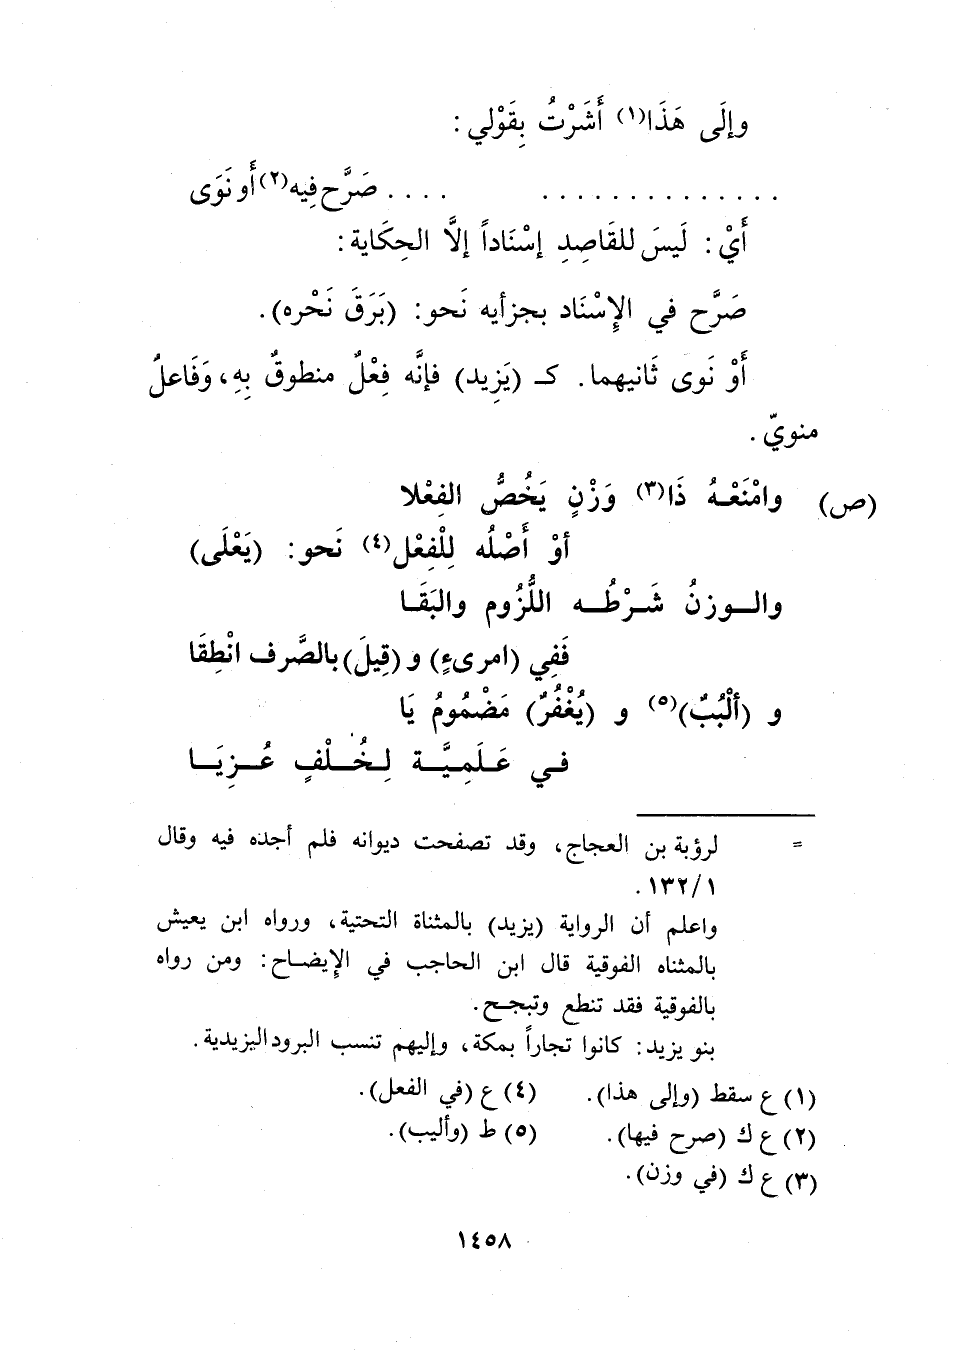 وإلَى هَذَا(١) أَشَرْتُ بِقَوْلي :
. . . . . . . . . . . . . . . . . . صَرَّح فِيه(٢) أَو نَوَى
أَيْ : لَيسَ للقَاصِدِ إسْنَاداً إلاَّ الحِكَاية :
صَرَّح في الإِسْنَاد بجزأيه نَحو : (بَرَقَ نَحْره) .
أَوْ نَوى ثَانيهما . كـ (يَزِيد) فإنَّه فِعْلٌ منطوقٌ بِهِ ، وَفَاعلٌ
منويّ .
(ص) وامْنَعْهُ ذَا(٣) وَزْنٍ يَخُصُّ الفِعْلا
أوْ أَصْلُه لِلْفِعْل(٤) نَحو : (يَعْلَى)
والـوزنُ شَـرْطُـه اللُّزُوم والبَقَـا
فَفِي (امرىءٍ) و (قِيلَ) بالصَّرف انْطِقَا
و (ألْبُبٌ)(٥) و (يُغْفُرٌ) مَضْمُومُ يَا
فـي عَـلَمِيَّـة لِـخُـلْفٍ عُـزِيَـا
= لرؤبة بن العجاج ، وقد تصفحت ديوانه فلم أجده فيه وقال
١٣٢/١ .
واعلم أن الرواية (يزيد) بالمثناة التحتية ، ورواه ابن يعيش
بالمثناه الفوقية قال ابن الحاجب في الإيضـاح : ومن رواه
بالفوقية فقد تنطع وتبجـح .
بنو يزيد : كانوا تجاراً بمكة ، وإليهم تنسب البرود اليزيدية .
(١) ع سقط (وإلى هذا) . (٤) ع (في الفعل) .
(٢) ع ك (صرح فيها) . (٥) ط (وأليب) .
(٣) ع ك (في وزن) .
١٤٥٨